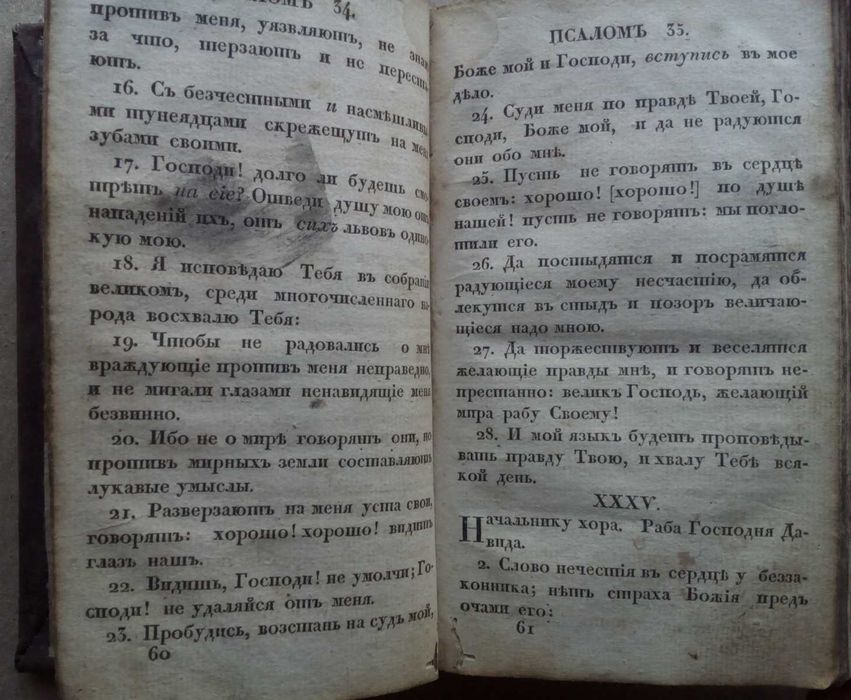 ЛОМЪ 34.
противъ меня, уязвляютъ, не зна
за что, терзаютъ и не переста
ютъ.
16. Съ безчестными и насмѣшливы
ми тунеядцами скрежещутъ на меня
зубами своими.
17. Господи! долго ли будешь смо
трѣть на сіе? Отведи душу мою отъ
нападеній ихъ, отъ сихъ львовъ одино
кую мою.
18. Я исповѣдаю Тебя въ собраніи
великомъ, среди многочисленнаго на
рода восхвалю Тебя:
19. Чтобы не радовались о мнѣ
враждующіе противъ меня неправедно,
и не мигали глазами ненавидящіе меня
безвинно.
20. Ибо не о мирѣ говорятъ они, но
противъ мирныхъ земли составляютъ
лукавые умыслы.
21. Разверзаютъ на меня уста свои,
говорятъ: хорошо! хорошо! видитъ
глазъ нашъ.
22. Видишь, Господи! не умолчи; Го-
споди! не удаляйся отъ меня.
23. Пробудись, возстань на судъ мой,
60
ПСАЛОМЪ 35.
Боже мой и Господи, вступись въ мое
дѣло.
24. Суди меня по правдѣ Твоей, Го-
споди, Боже мой, и да не радуются
они обо мнѣ.
25. Пусть не говорятъ въ сердцѣ
своемъ: хорошо! [хорошо!] по душѣ
нашей! пусть не говорятъ: мы погло-
тили его.
26. Да постыдятся и посрамятся
радующіеся моему несчастію, да об-
лекутся въ стыдъ и позоръ величаю-
щіеся надо мною.
27. Да торжествуютъ и веселятся
желающіе правды мнѣ, и говорятъ не-
престанно: великъ Господь, желающій
мира рабу Своему!
28. И мой языкъ будетъ проповѣды-
вать правду Твою, и хвалу Тебѣ вся-
кой день.
XXXV.
Начальнику хора. Раба Господня Да-
вида.
2. Слово нечестія въ сердцѣ у безза-
конника; нѣтъ страха Божія предъ
очами его:
61